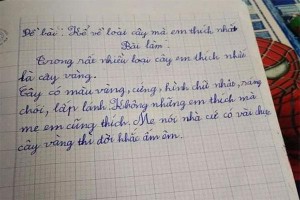 Đề bài: Kể về loài cây mà em thích nhất
Bài làm.
Trong rất nhiều loại cây em thích nhất
là cây vàng.
Cây có màu vàng, cứng, hình chữ nhật, sáng
chói, lấp lánh. Không những em thích mà
mẹ em cũng thích. Mẹ nói nhà cứ có vài chục
cây vàng thì đời khắc ấm êm.